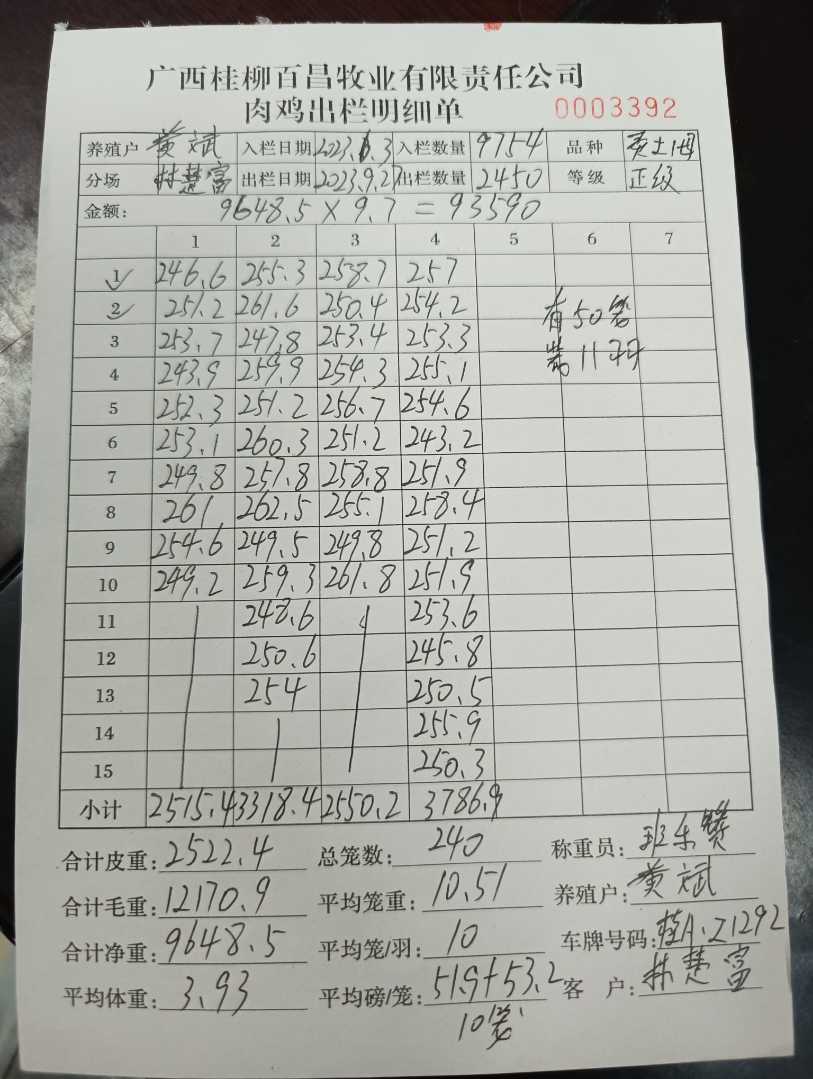 广西桂柳百昌牧业有限责任公司
肉鸡出栏明细单 0003392
养殖户 黄斌 入栏日期 2023.6.3 入栏数量 9754 品种
分场 林楚富 出栏日期 2023.9.27 出栏数量 2450 等级 正级
金额: 9648.5 × 9.7 = 93590
1 2 3 4 5 6 7
1 246.6 255.3 258.7 257
2 251.2 261.6 250.4 254.2
3 253.7 247.8 253.4 253.3
4 243.9 259.9 254.3 255.1
5 252.3 251.2 256.7 254.6
6 253.1 260.3 251.2 243.2
7 249.8 257.8 258.8 251.9
8 261 262.5 255.1 258.4
9 254.6 249.5 249.8 251.2
10 249.2 259.3 261.8 251.9
11 248.6 253.6
12 250.6 245.8
13 254 250.5
14 255.9
15 250.3
有50笼
装11羽
小计 2515.4 3318.4 2550.2 3786.9
合计皮重: 2522.4 总笼数: 240 称重员:
合计毛重: 12170.9 平均笼重: 10.51 养殖户: 黄斌
合计净重: 9648.5 平均笼/羽: 10 车牌号码: 桂A·Z1292
平均体重: 3.93 平均磅/笼: 51.9+53.2 客 户: 林楚富
10笼